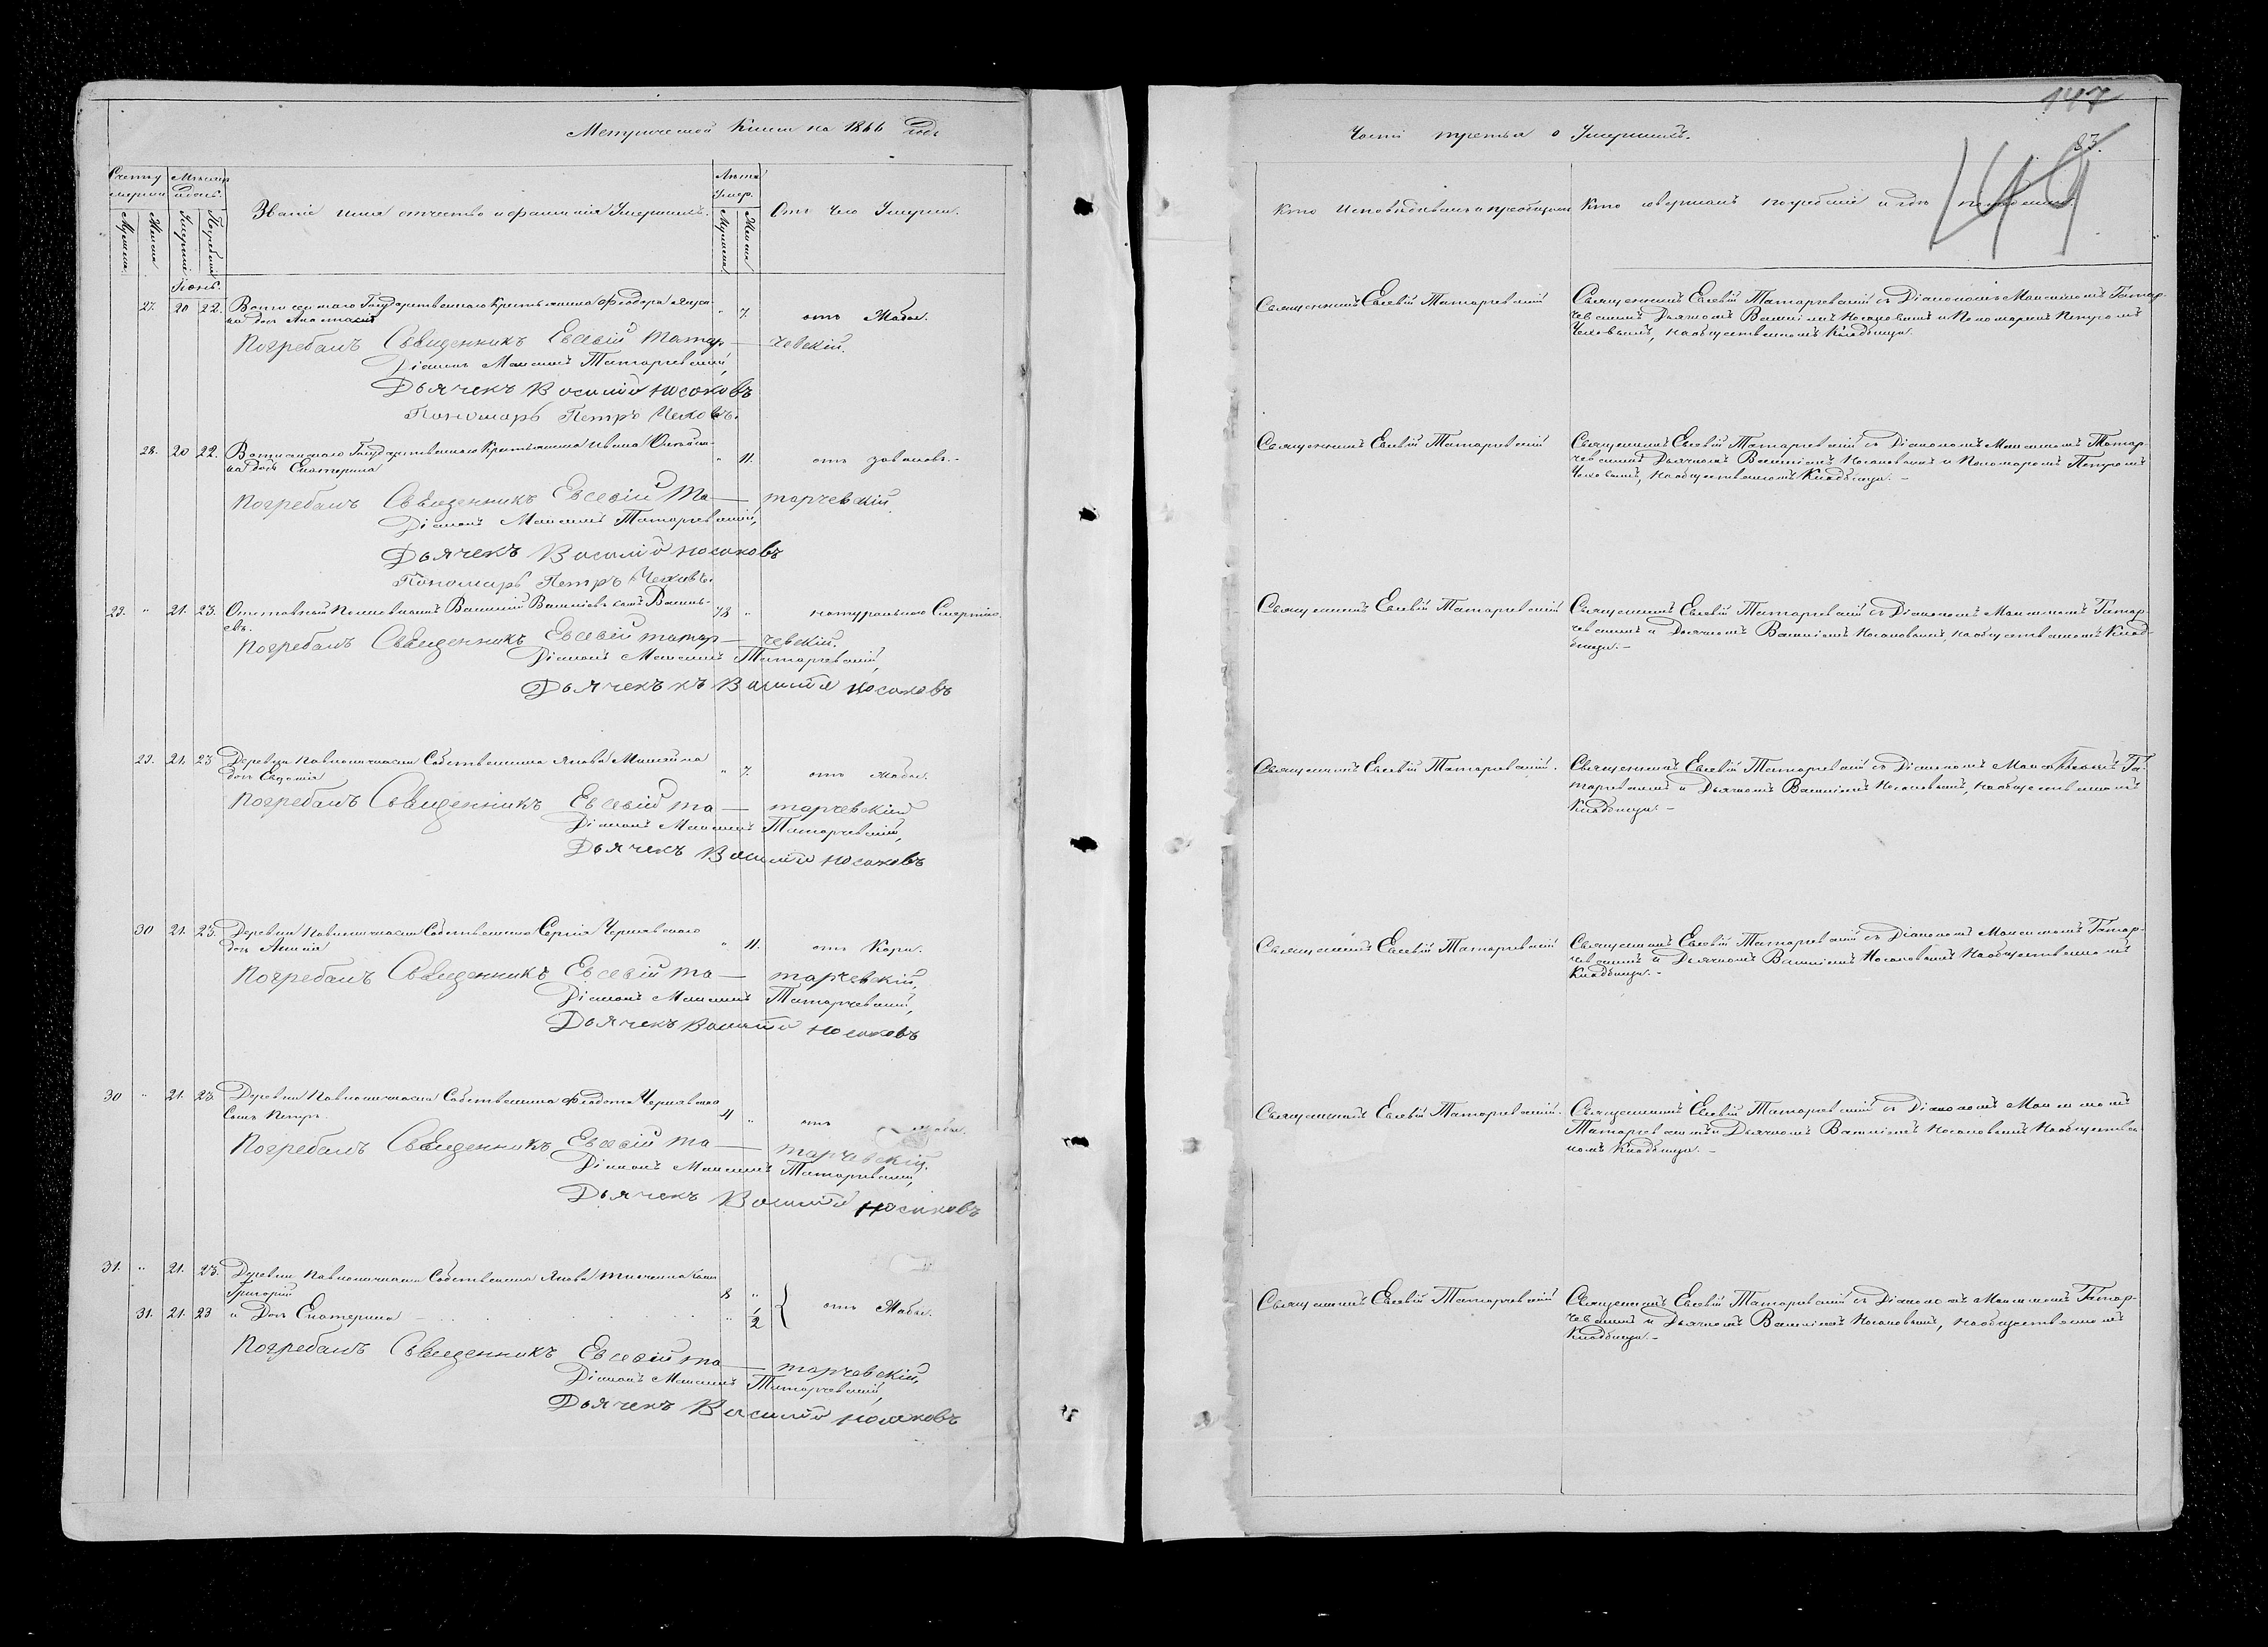 Метрической Книги на 1866 Годъ
Счетъ умерши
Мѣсяцъ день.
Звание имя отчество и фамилія Умершихъ.
Лѣта Умер.
Отъ чего Умерли.
Мужеска
Женска
Умертвія
Погребенія
Мужеска
Женска
27. 20 22. Государственнаго Крестьянина Феодора
дочь Анастасія " 7. отъ Жабы.
Погребалъ Священникъ Евсевій Татар — чевскій.
Діаконъ Максимъ Татарчевскій,
Дьячекъ Василій Носаковъ
Пономарь Петръ Чеховъ.
28. 20 22. Государственнаго Крестьянина Ивана
дочь Екатерина " 11. отъ зобаковъ.-
Погребалъ Священникъ Евсевій Та — тарчевскій.
Діаконъ Максимъ Татарчевскій,
Дьячекъ Василій Носаковъ
Пономарь Петръ Чеховъ.
29. " 21. 23. Отставной Василій Василь-
евъ. 78 " натуральною Смертію.
Погребалъ Священникъ Евсевій Татар — чевскій.
Діаконъ Максимъ Татарчевскій,
Дьячекъ Василій Носаковъ
29. 21. 23 Деревни Собственника Якова
дочь Евдокія " 7. отъ Жабы.
Погребалъ Священникъ Евсевій Та — тарчевскій
Діаконъ Максимъ Татарчевскій,
Дьячекъ Василій Носаковъ
30 21. 23. Деревни Собственника Сергія Чернявскаго
дочь Анна " 11. отъ Кори.
Погребалъ Священникъ Евсевій Та — тарчевскій,
Діаконъ Максимъ Татарчевскій,
Дьячекъ Василій Носаковъ
30 " 21. 23. Деревни Собственника Феодота Чернявскаго
Сынъ Петръ. 4 " отъ Жабы.
Погребалъ Священникъ Евсевій Та — тарчевскій.
Діаконъ Максимъ Татарчевскій,
Дьячекъ Василій Носаковъ
31. " 21. 23. Деревни Собственника Якова сынъ
Григорій 8 "
31. 21. 23 и Дочь Екатерина " 1/2 отъ Жабы.
Погребалъ Священникъ Евсевій Та — тарчевскій,
Діаконъ Максимъ Татарчевскій,
Дьячекъ Василій Носаковъ
147
Часть третья о Умершихъ.
83.
149
Кто Исповѣдывалъ и пріобщалъ
Кто совершалъ погребеніе и гдѣ
Священникъ Евсевій Татарчевскій
Священникъ Евсевій Татарчевскій съ Діакономъ Максимомъ Татар-
чевскимъ Дьячкомъ Василіемъ Носаковымъ и Пономаремъ Петромъ
Чеховымъ, на общественномъ Кладбищи.
Священникъ Евсевій Татарчевскій
Священникъ Евсевій Татарчевскій съ Діакономъ Максимомъ Татар-
чевскимъ Дьячкомъ Василіемъ Носаковымъ и Пономаромъ Петромъ
Чеховымъ, на общественномъ Кладбищи. -
Священникъ Евсевій Татарчевскій
Священникъ Евсевій Татарчевскій съ Діакономъ Максимомъ Татар-
чевскимъ и Дьячкомъ Василіемъ Носаковымъ, на общественномъ Клад-
бищи. -
Священникъ Евсевій Татарчевскій.
Священникъ Евсевій Татарчевскій съ Діакономъ Максимомъ Та-
тарчевскимъ и Дьячкомъ Василіемъ Носаковымъ, на общественномъ
Кладбищи. -
Священникъ Евсевій Татарчевскій
Священникъ Евсевій Татарчевскій съ Діакономъ Максимомъ Татар-
чевскимъ и Дьячкомъ Василіемъ Носаковымъ на общественномъ
Кладбищи. -
Священникъ Евсевій Татарчевскій.
Священникъ Евсевій Татарчевскій съ Діакономъ Максимомъ
Татарчевскимъ и Дьячкомъ Василіемъ Носаковымъ на обществен-
номъ Кладбищи. -
Священникъ Евсевій Татарчевскій
Священникъ Евсевій Татарчевскій съ Діакономъ Максимомъ Татар-
чевскимъ и Дьячкомъ Василіемъ Носаковымъ, на общественномъ
Кладбищи. -